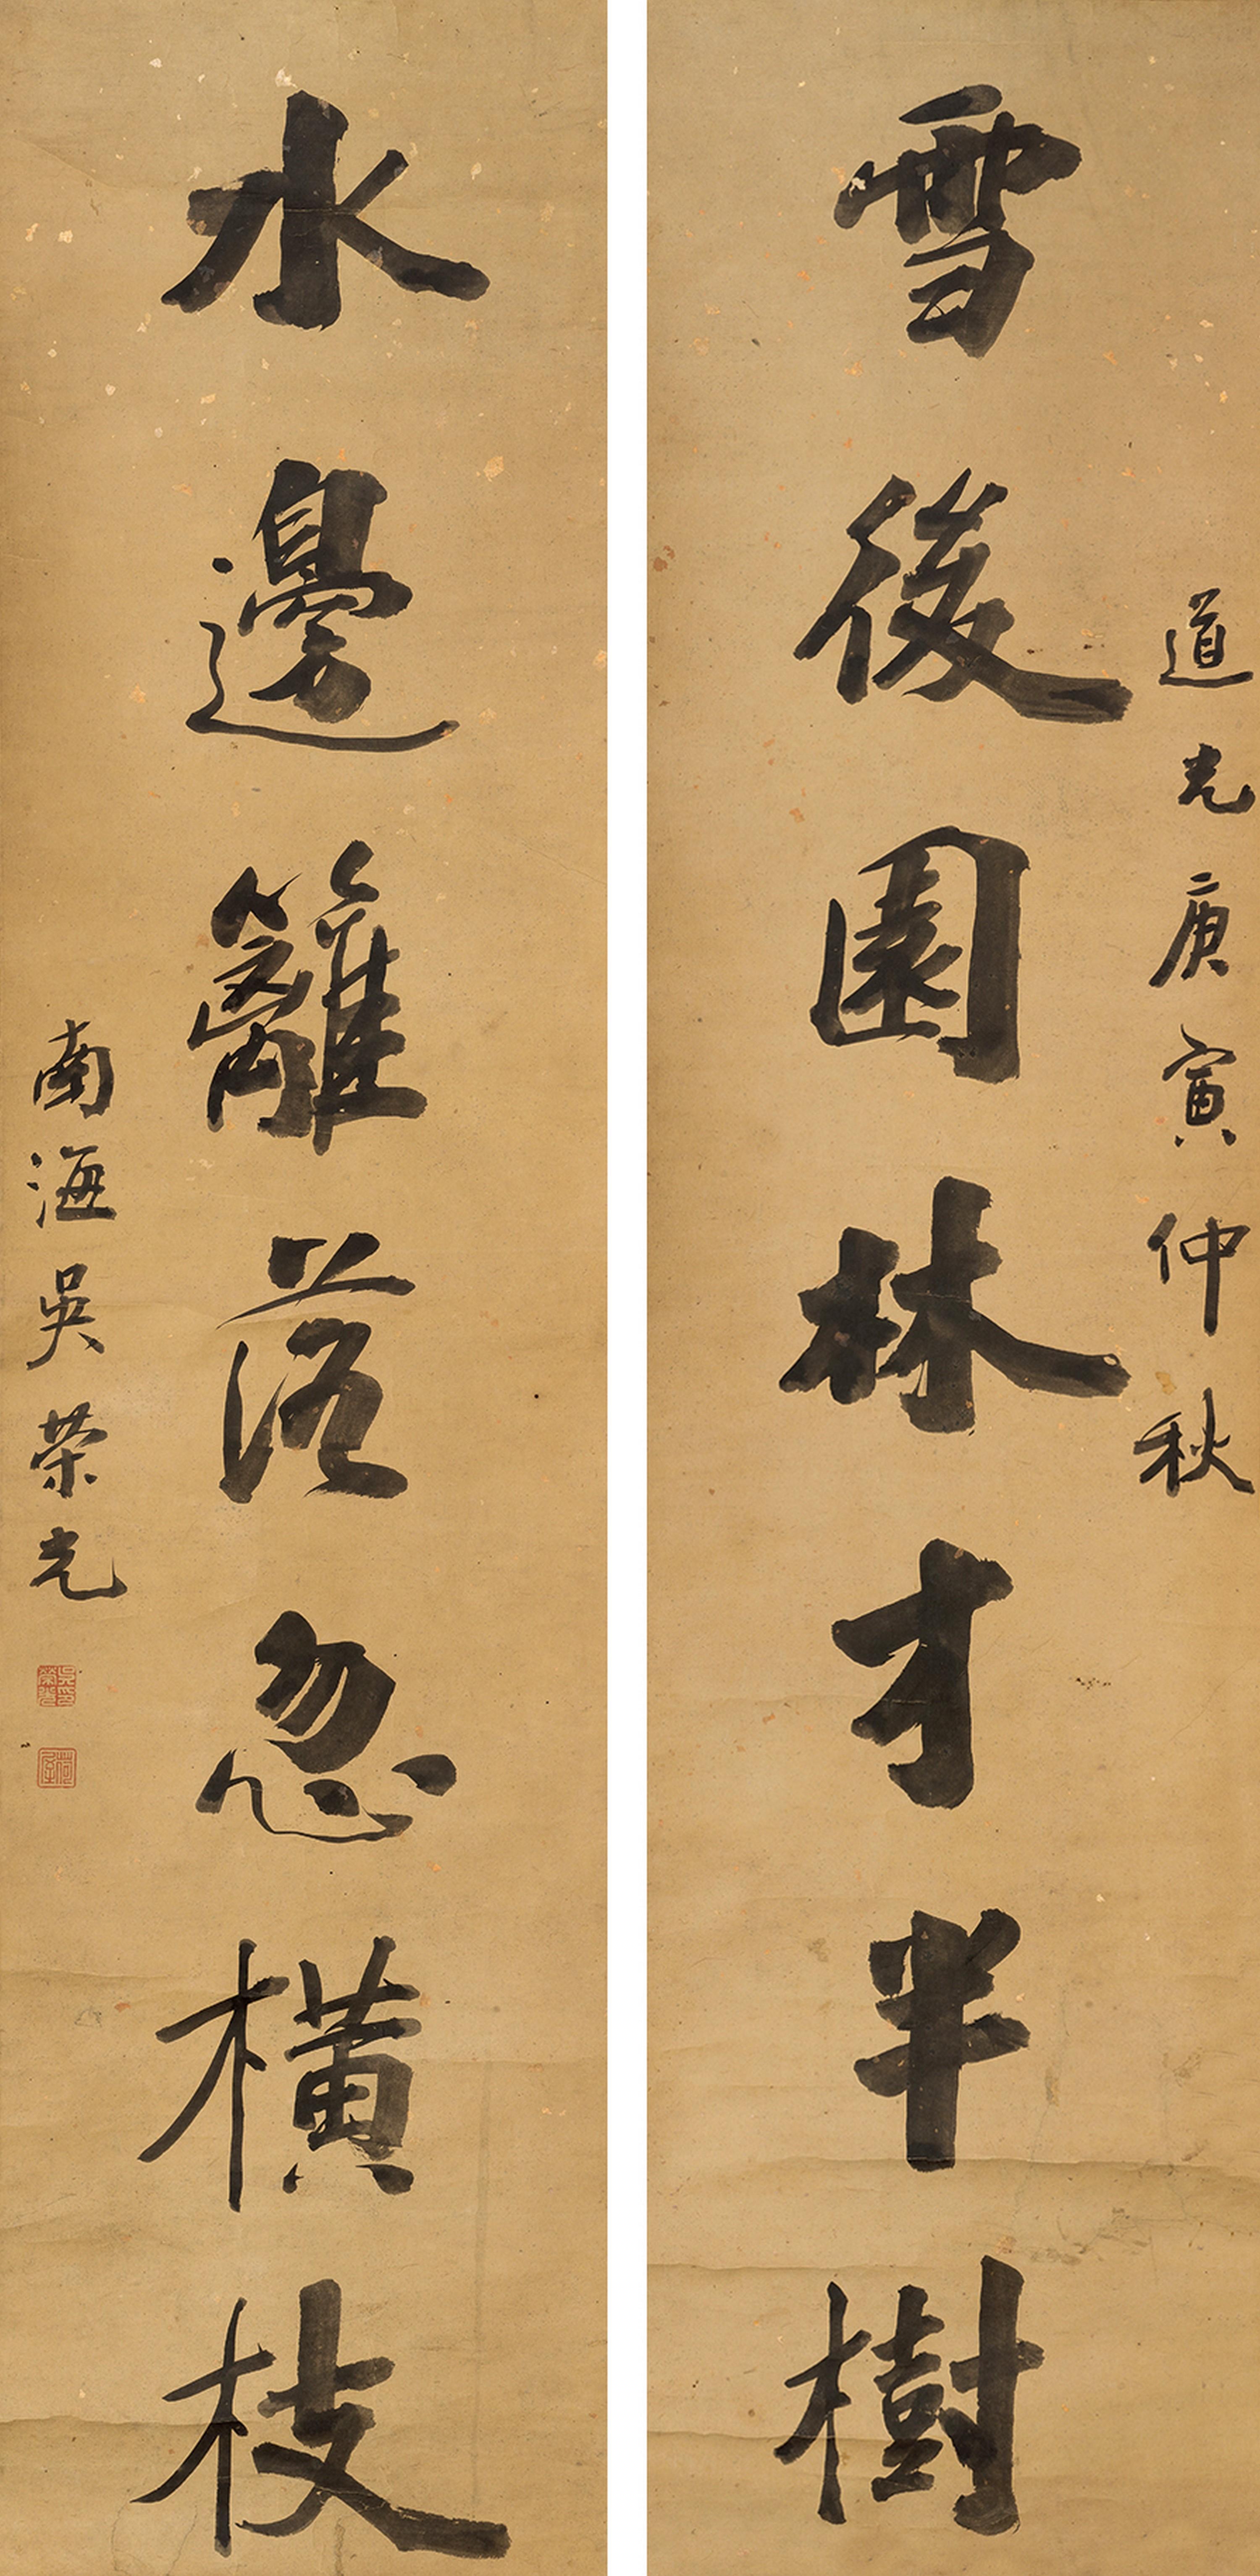 道光庚寅仲秋
雪後園林才半樹
水邊籬落忽橫枝
南海吳荣光
吳榮光印
荷屋